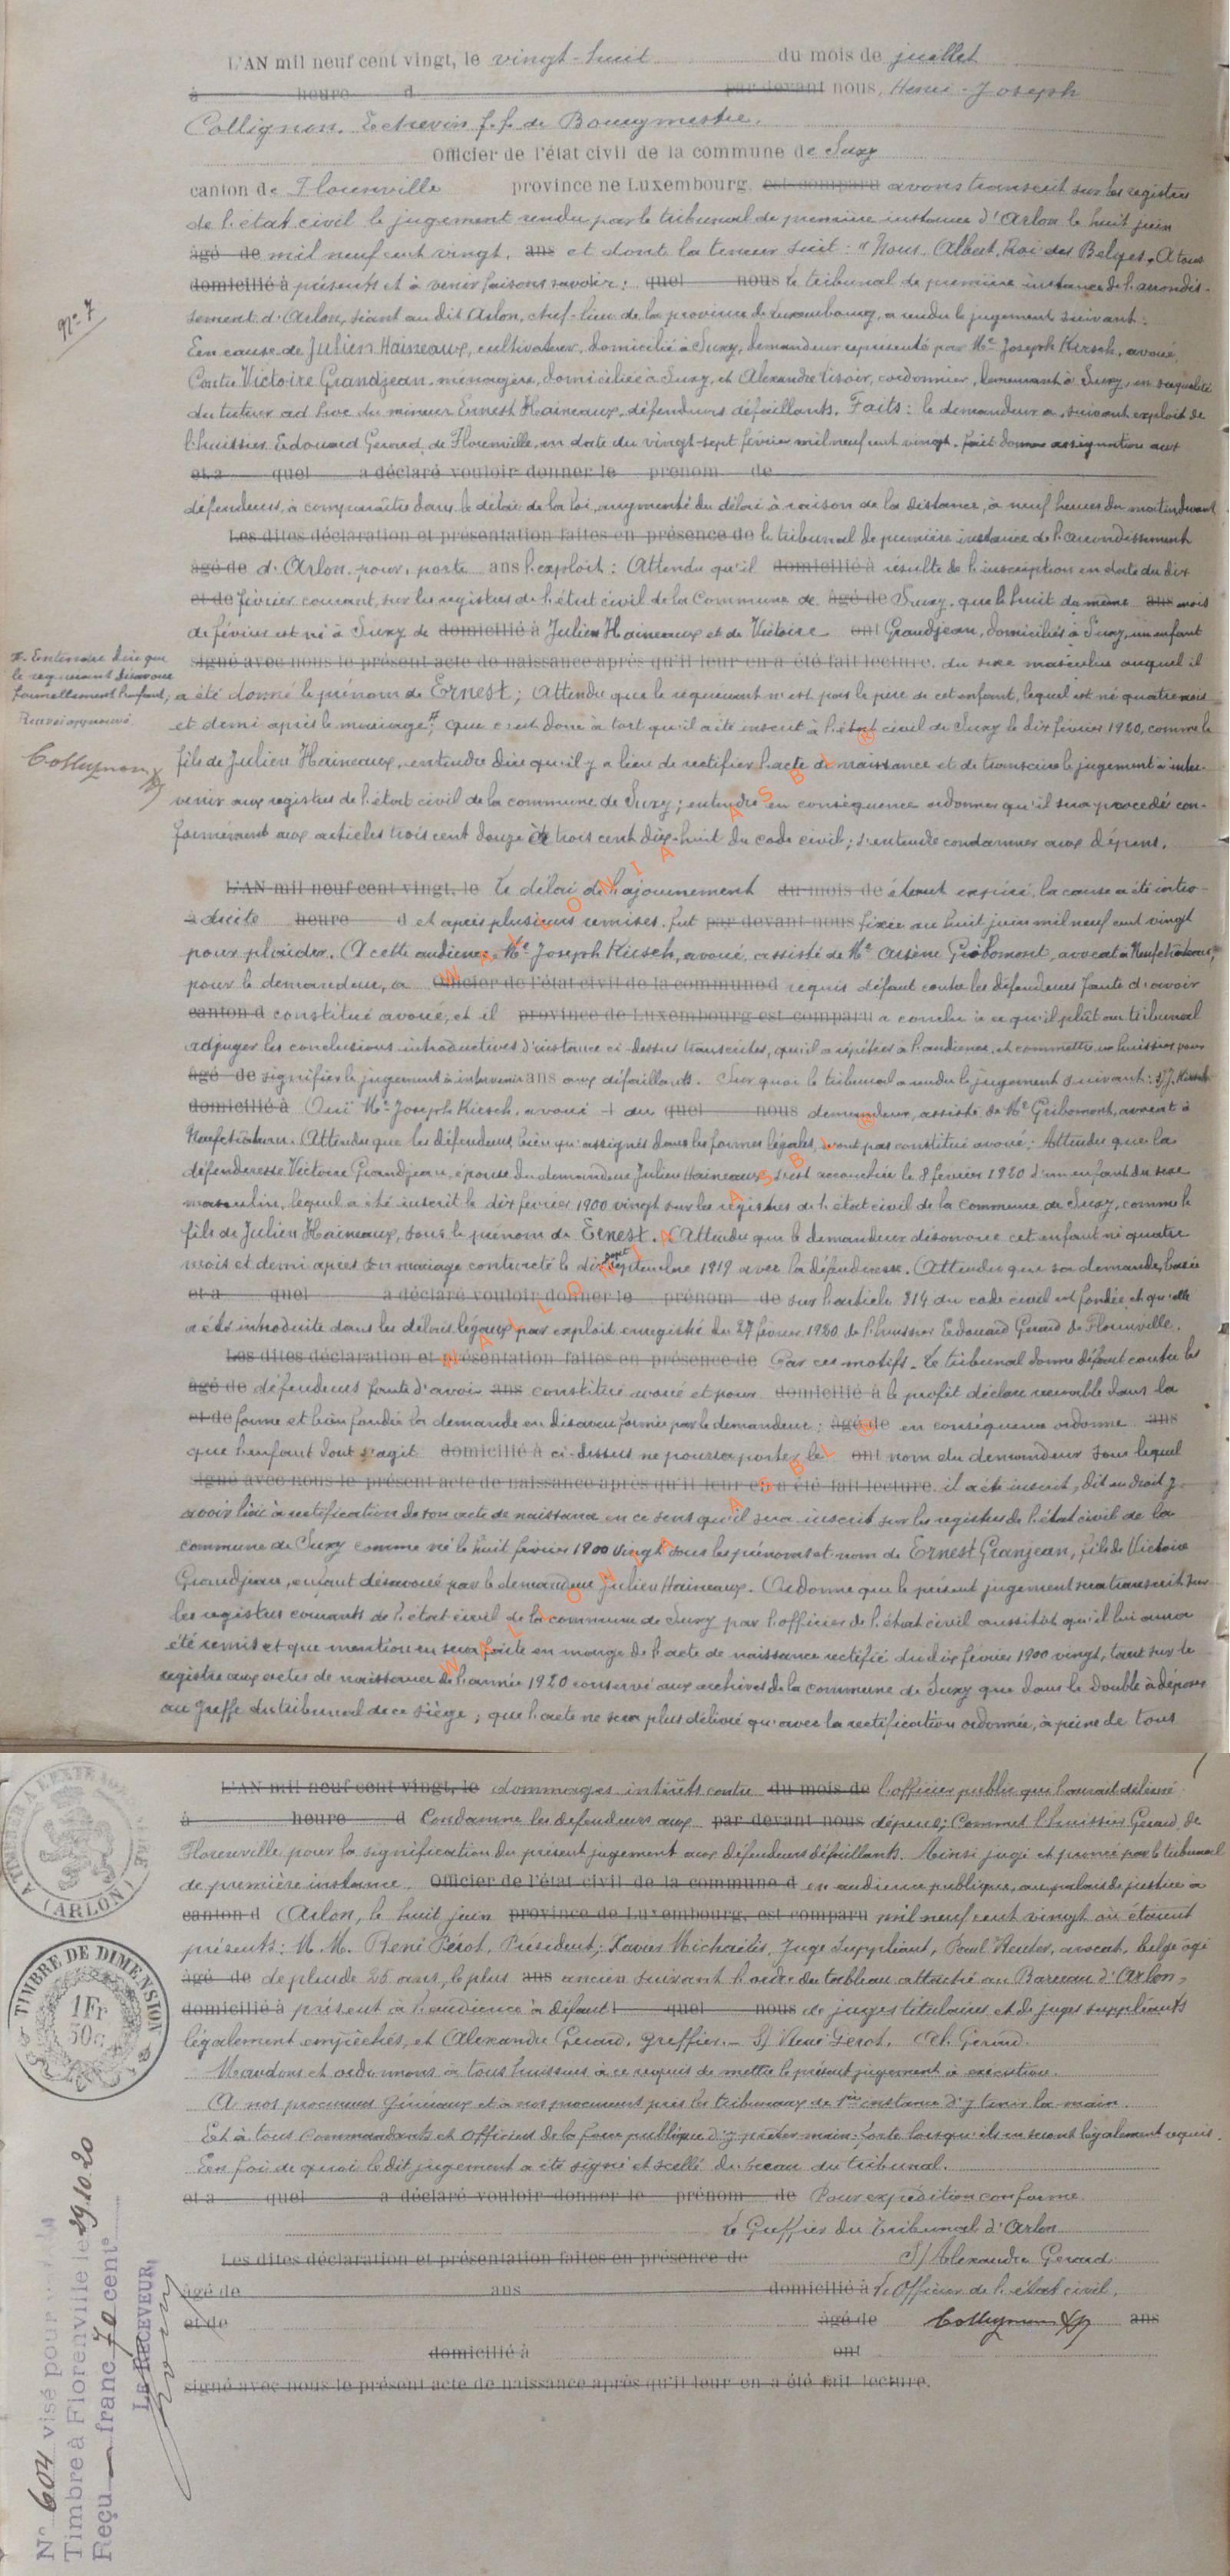 L'AN mil neuf cent vingt, le vingt-huit du mois de juillet
à heure d par devant nous, Henri-Joseph
Collignon, Echevin f.f. de Bourgmestre,
Officier de l'état civil de la commune de Suxy
canton de Florenville province ne Luxembourg, est comparu avons transcrit sur les registres
de l'état civil le jugement rendu par le tribunal de première instance d'Arlon le huit juin
âgé de mil neuf cent vingt, ans et dont la teneur suit : "Nous, Albert, Roi des Belges, A tous
domicilié à présents et à venir faisons savoir : quel nous Le tribunal de première instance de l'arrondis-
sement d'Arlon, séant au dit Arlon, chef-lieu de la province de Luxembourg, a rendu le jugement suivant :
N° 7
En cause de Julien Haineaux, cultivateur, domicilié à Suxy, demandeur représenté par Me Joseph Kirsch, avoué,
Contre Victoire Grandjean, ménagère, domiciliée à Suxy, et Alexandre Lisoir, cordonnier, demeurant à Suxy, en sa qualité
du tuteur ad hoc du mineur Ernest Haineaux, défendeurs défaillants. Faits : le demandeur a, suivant exploit de
l'huissier Edouard Gérard, de Florenville, en date du vingt-sept février mil neuf cent vingt, fait donner assignation aux
et a quel a déclaré vouloir donner le prénom de
défendeurs, à comparaître dans le délai de la loi, augmenté du délai à raison de la distance, à neuf heures du matin devant
Les dites déclaration et présentation faites en présence de le tribunal de première instance de l'arrondissement
âgé de d'Arlon, pour, porte ans l'exploit : Attendu qu'il domicilié à résulte de l'inscription en date du dix
et de février courant, sur les registres de l'état civil de la Commune de âgé de Suxy, que le huit du même ans mois
de février est né à Suxy de domicilié à Julien Haineaux et de Victoire ont Grandjean, domiciliés à Suxy, un enfant
signé avec nous le présent acte de naissance après qu'il leur en a été fait lecture. du sexe masculin auquel il
Entendre dire que
le requérant désavoue
formellement l'enfant,
Renvoi approuvé
Collignon
a été donné le prénom de Ernest ; Attendu que le requérant n'est pas le père de cet enfant, lequel est né quatre mois
et demi après le mariage ; que c'est donc à tort qu'il a été inscrit à l'état civil de Suxy le dix février 1920, comme le
fils de Julien Haineaux, entendre dire qu'il y a lieu de rectifier l'acte de naissance et de transcrire le jugement à inter-
venir aux registres de l'état civil de la commune de Suxy ; entendre en conséquence ordonner qu'il sera procédé con-
formément aux articles trois cent douze à trois cent dix-huit du code civil ; s'entendre condamner aux dépens.
L'AN mil neuf cent vingt, le Le délai de l'ajournement du mois de étant expiré, la cause a été intro-
à duite heure d et après plusieurs remises, fut par devant nous fixée au huit juin mil neuf cent vingt
pour plaider. A cette audience, Me Joseph Kirsch, avoué, assisté de Me Arsène Gribomont, avocat à Neufchâteau,
pour le demandeur, a Officier de l'état civil de la commune d requis défaut contre les défendeurs faute d'avoir
canton d constitué avoué, et il province de Luxembourg est comparu a conclu à ce qu'il plût au tribunal
adjuger les conclusions introductives d'instance ci-dessus transcrites, qu'il a répétées à l'audience, et commettre un huissier pour
âgé de signifier le jugement à intervenir ans aux défaillants. Sur quoi le tribunal a rendu le jugement suivant : s) J. Kirsch
domicilié à Ouï Me Joseph Kirsch, avoué du quel nous demandeur, assisté de Me Gribomont, avocat à
Neufchâteau. Attendu que les défendeurs, bien qu'assignés dans les formes légales, n'ont pas constitué avoué ; Attendu que la
défenderesse Victoire Grandjean, épouse du demandeur Julien Haineaux, s'est accouchée le 8 février 1920 d'un enfant du sexe
masculin, lequel a été inscrit le dix février 1900 vingt sur les registres de l'état civil de la Commune de Suxy, comme le
fils de Julien Haineaux, sous le prénom de Ernest. Attendu que le demandeur désavoue cet enfant né quatre
mois et demi après son mariage contracté le dix sept septembre 1919 avec la défenderesse. Attendu que sa demande, basée
et a quel a déclaré vouloir donner le prénom de sur l'article 314 du code civil est fondée et qu'elle
a été introduite dans les délais légaux par exploit enregistré du 27 février 1920 de l'huissier Edouard Gérard de Florenville.
Les dites déclaration et présentation faites en présence de Par ces motifs, Le tribunal donne défaut contre les
âgé de défendeurs faute d'avoir ans constitué avoué et pour domicilié à le profit déclare recevable dans la
et de forme et bien fondée la demande en désaveu formée par le demandeur ; âgé de en conséquence ordonne ans
que l'enfant dont s'agit domicilié à ci-dessus ne pourra porter le ont nom du demandeur sous lequel
signé avec nous le présent acte de naissance après qu'il leur en a été fait lecture. il a été inscrit, dit au droit y
avoir lieu à rectification de son acte de naissance en ce sens qu'il sera inscrit sur les registres de l'état civil de la
commune de Suxy comme né le huit février 1900 vingt sous les prénom et nom de Ernest Granjean, fils de Victoire
Grandjean, enfant désavoué par le demandeur Julien Haineaux. Ordonne que le présent jugement sera transcrit sur
les registres courants de l'état civil de la commune de Suxy par l'officier de l'état civil aussitôt qu'il lui aura
été remis et que mention en sera faite en marge de l'acte de naissance rectifié du dix février 1900 vingt, tant sur le
registre aux actes de naissance de l'année 1920 conservé aux archives de la commune de Suxy que dans le double à déposer
au Greffe du tribunal de ce siège ; que l'acte ne sera plus délivré qu'avec la rectification ordonnée, à peine de tous
WALLONIA ASBL ®
WALLONIA ASBL ®
WALLONIA ASBL ®
L'AN mil neuf cent vingt, le dommages intérêts contre du mois de l'officier public qui l'aurait délivré
à heure d Condamne les défendeurs aux par devant nous dépens ; Commet l'huissier Gérard de
Florenville pour la signification du présent jugement aux défendeurs défaillants. Ainsi jugé et prononcé par le tribunal
de première instance Officier de l'état civil de la commune d en audience publique, au palais de justice à
canton d Arlon, le huit juin province de Luxembourg, est comparu mil neuf cent vingt où étaient
présents : M.M. René Pérot, Président, Xavier Michaëlis, Juge Suppléant, Paul Reuter, avocat, belge âgé
âgé de de plus de 25 ans, le plus ans ancien suivant l'ordre du tableau attaché au Barreau d'Arlon,
domicilié à présent à l'audience à défaut quel nous de juges titulaires et de juges suppléants
légalement empêchés, et Alexandre Gérard, greffier.- S) René Pérot, Al. Gérard.
Mandons et ordonnons à tous huissiers à ce requis de mettre le présent jugement à exécution.
A nos procureurs Généraux et à nos procureurs près les tribunaux de 1ère instance d'y tenir la main.
Et à tous Commandants et Officiers de la force publique d'y prêter main-forte lorsqu'ils en seront légalement requis.
En foi de quoi le dit jugement a été signé et scellé du sceau du tribunal.
et a quel a déclaré vouloir donner le prénom de Pour expédition conforme
Le Greffier du Tribunal d'Arlon
Les dites déclaration et présentation faites en présence de S) Alexandre Gérard
âgé de ans domicilié à L'Officier de l'état civil,
et de âgé de Collignon ans
domicilié à ont
signé avec nous le présent acte de naissance après qu'il leur en a été fait lecture.
(ARLON)
TIMBRE DE DIMENSION
1 Fr
50c
N° 604 visé pour
Timbre à Florenville le 29 10 20
Reçu franc 70 cent
LE RECEVEUR,